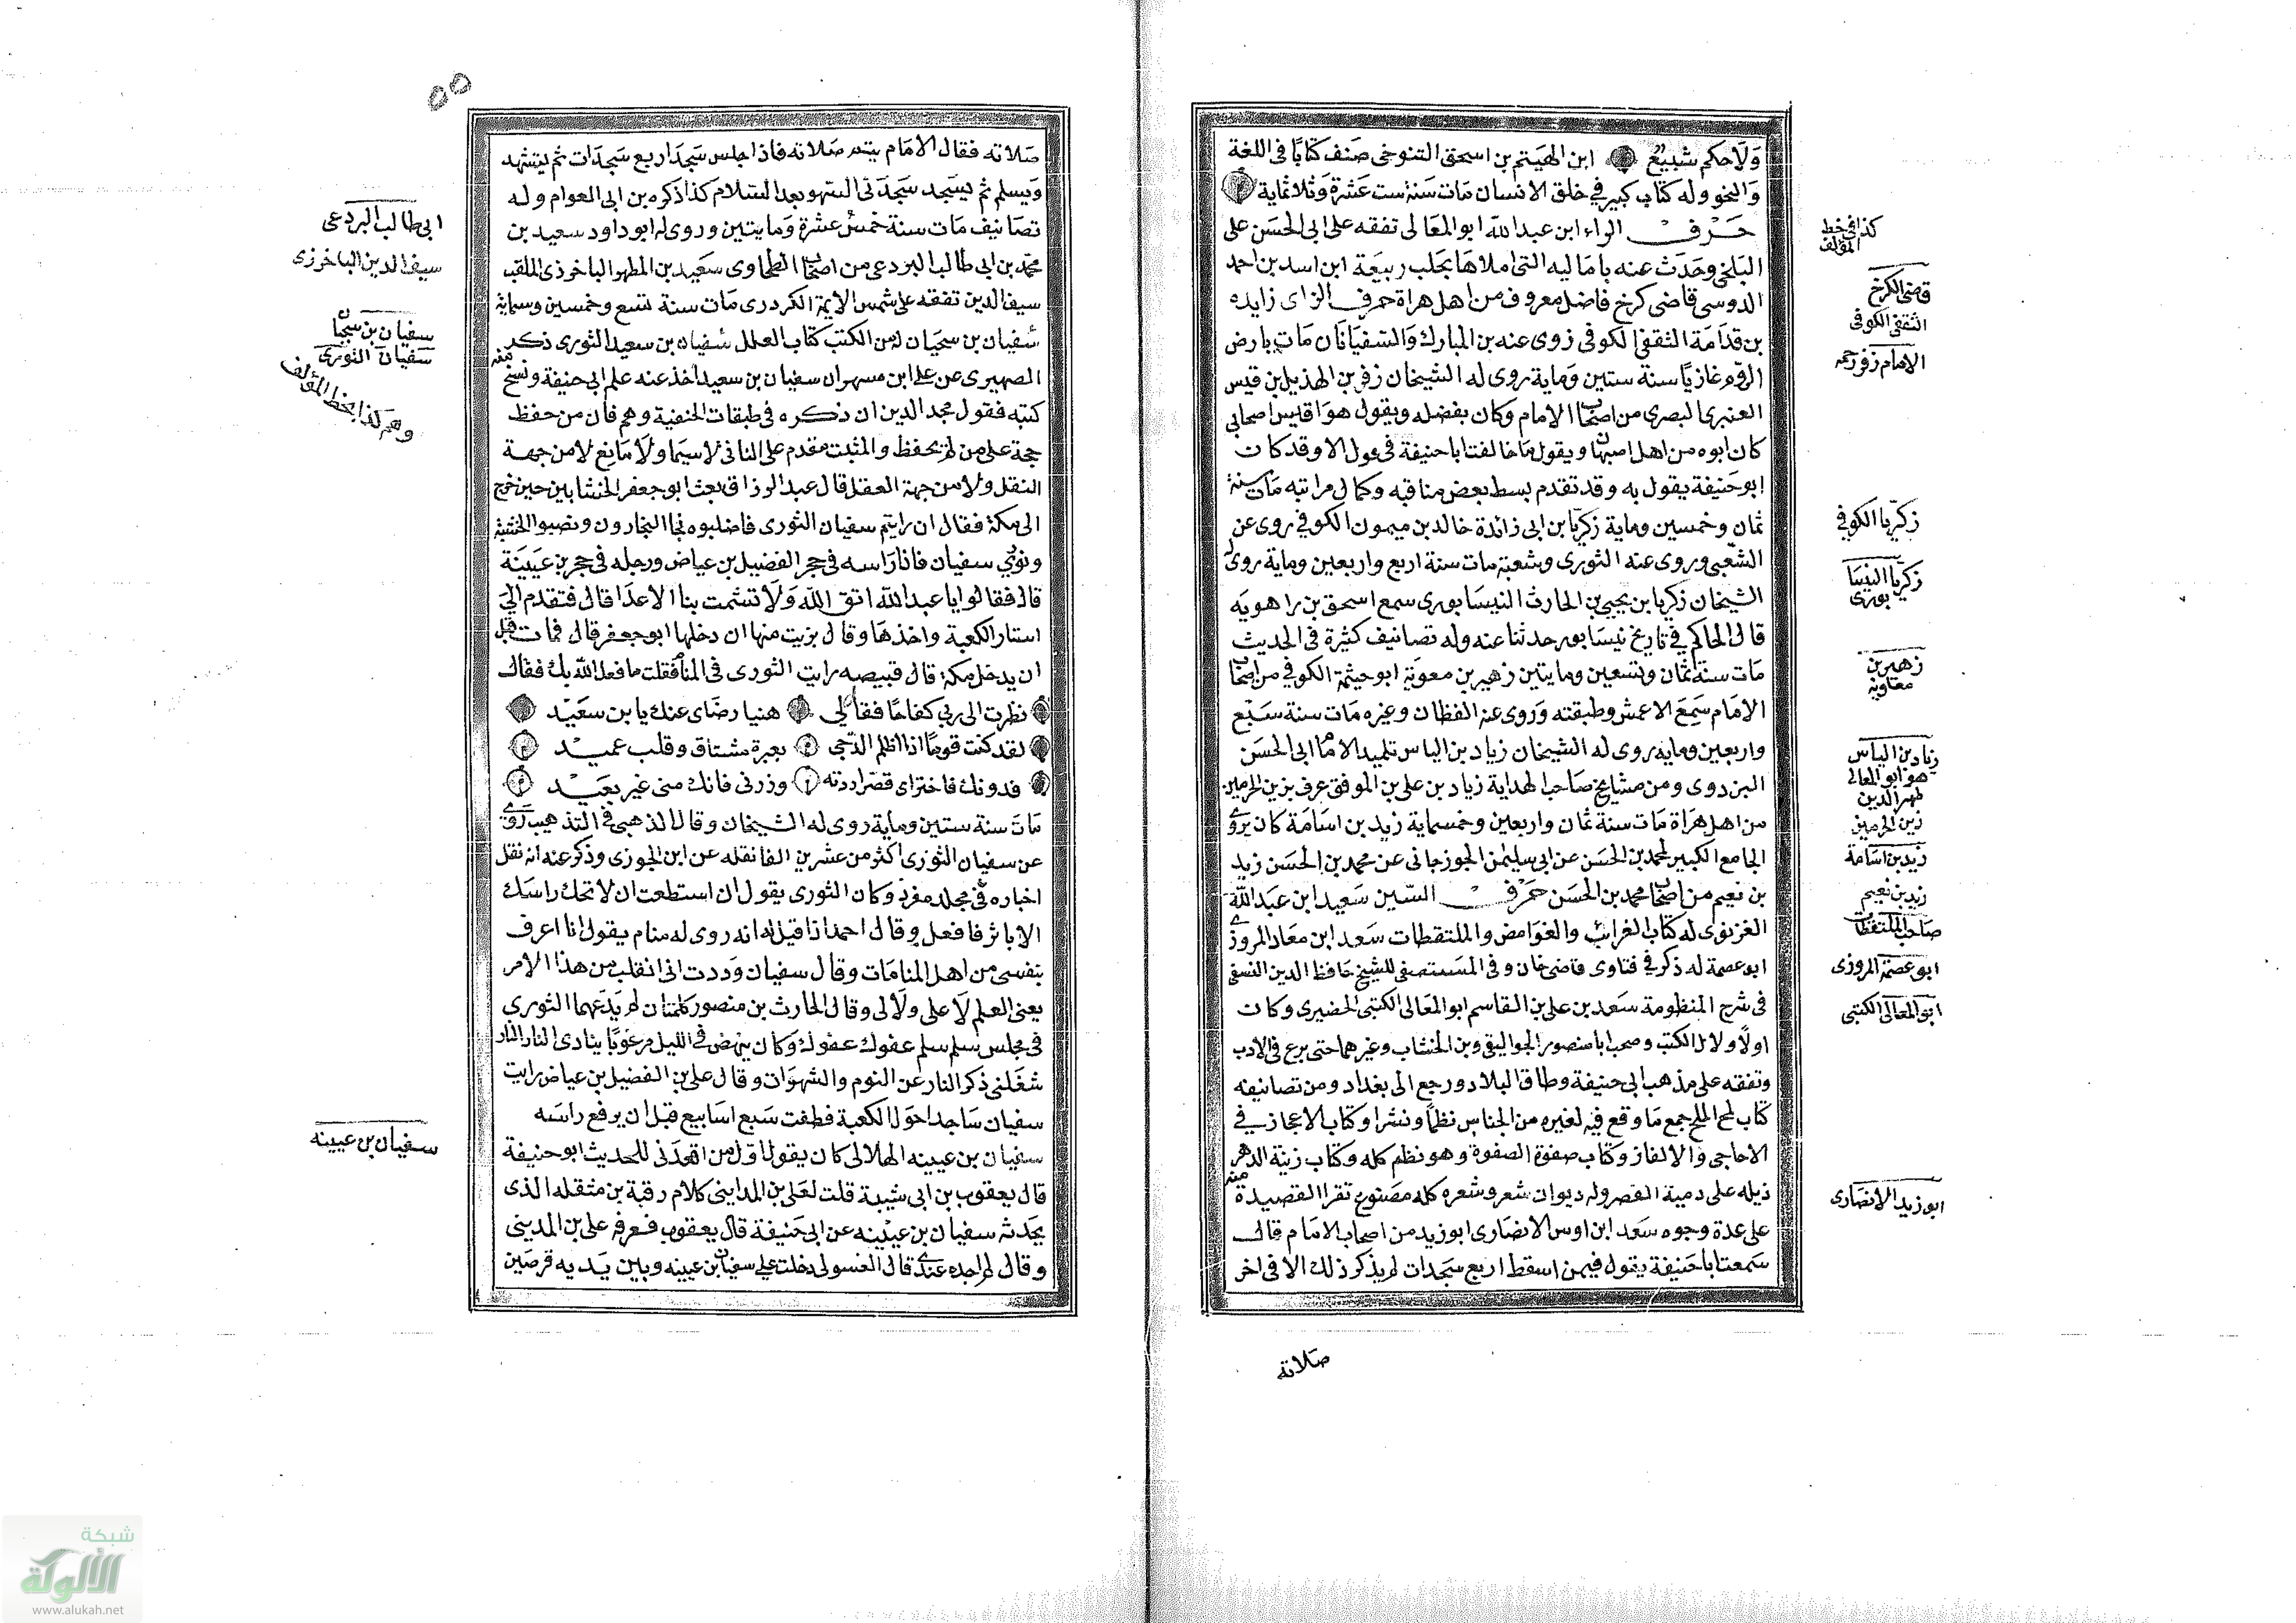 ولا حكم شبيع ابن الهيتم بن اسحق التنوخى صنف كتابا فى اللغة
والنحو وله كتاب كبير في خلق الانسان مات سنة ست عشرة وثلاثماية
حرف الراء ابن عبد الله ابو المعالى تفقه على ابى الحسن على
البلخى وحدث عنه باماليه التى املاها بحلب ربيعة ابن اسد بن احمد
الدوسى قاضى كرخ فاضل معروف من اهل هراة حرف الزاى زايده
بن قدامة الثقفى الكوفى روى عنه بن المبارك والسفيانان مات بارض
الروم غازيا سنة ستين وماية روى له الشيخان زفر بن الهذيل بن قيس
العنبرى البصرى من اصحاب الامام وكان بفضله ويقول هو اقيس اصحابى
كان ابوه من اهل اصبهان ويقول ما خالفت ابا حنيفة فى قول الا وقد كان
ابو حنيفة يقول به وقد تقدم بسط بعض مناقبه وكمال مراتبه مات سنة
ثمان وخمسين وماية زكريا بن ابى زائدة خالد بن ميمون الكوفي روى عن
الشعبى وروى عنه الثورى وشعبة مات سنة اربع واربعين وماية روى له
الشيخان زكريا بن يحيى بن الحارث النيسابورى سمع اسحق بن راهويه
قال الحاكم في تاريخ نيسابور حدثنا عنه وله تصانيف كثيرة فى الحديث
مات سنة ثمان وتسعين ومايتين زهير بن معوية ابو حيثمة الكوفي من اصحاب
الامام سمع الاعمش وطبقته وروى عنه القطان وغيره مات سنة سبع
واربعين وماية روى له الشيخان زياد بن الياس تلميذ الامام ابى الحسن
البزدوى ومن مشايخ صاحب الهداية زياد بن على بن الموفق عرف بزين الحرمين
من اهل هراة مات سنة ثمان واربعين وخمسماية زيد بن اسامة كان يروى
الجامع الكبير لمحمد بن الحسن عن ابى سليمن الجوزجانى عن محمد بن الحسن زيد
بن نعيم من اصحاب محمد بن الحسن حرف السين سعيد ابن عبد الله
الغزنوى له كتاب الغرائب والغوامض والملتقطات سعد ابن معاد المروزى
ابو عصمة له ذكر في فتاوى قاضى خان وفى المستصفى للشيخ حافظ الدين النسفى
فى شرح المنظومة سعد بن على بن القاسم ابو المعالى الكتبى الحضيرى وكان
اولا دلال الكتب وصحب ابا منصور الجواليقى وبن الخشاب وغيرهما حتى برع فى الادب
وتفقه على مذهب ابى حنيفة وطاف البلاد ورجع الى بغداد ومن تصانيفه
كتاب لمح الملح جمع ما وقع فيه لغيره من الجناس نظما ونثرا وكتاب الاعجاز في
الاحاجى والالغاز وكتاب صفوة الصفوة وهو نظم كله وكتاب زينة الدهر
ذيله على دمية القصر وله ديوان شعر وشعره كله مصنوع تقرا القصيدة منه
على عدة وجوه سعد ابن اوس الانصارى ابو زيد من اصحاب الامام قال
سمعت ابا حنيفة يقول فيمن اسقط اربع سجدات لم يذكر ذلك الا فى اخر
صلاته
كذا فى خط
المؤلف
قاضى الكرخ
الثقفى الكوفى
الامام زفر رحمه
زكريا الكوفي
زكريا النيسا
بورى
زهير بن
معاوية
زياد بن الياس
هو ابو المعالى
ظهير الدين
زين الحرمين
زيد بن اسامة
زيد بن نعيم
صاحب الملتقطات
ابو عصمة المروزى
ابو المعالى الكتبى
ابو زيد الانصارى
٥٥
صلاته فقال الامام يتم صلاته فاذا جلس سجد اربع سجدات ثم يتشهد
ويسلم ثم يسجد سجدتى السهو بعد السلام كذا ذكره بن ابى العوام وله
تصانيف مات سنة خمس عشرة ومايتين وروى له ابو داود سعيد بن
محمد بن ابى طالب البردعى من اصحاب الطحاوى سعيد بن المطهر الباخرزى الملقب
سيف الدين تفقه على شمس الايمة الكردرى مات سنة تسع وخمسين وستماية
سفيان بن سحيان له من الكتب كتاب العلل سفيان بن سعيد الثورى ذكر
الصهيرى عن على ابن مسهر ان سفيان بن سعيد اخذ عنه علم ابى حنيفة ونسخ منه
كتبه فقول مجد الدين ان ذكره فى طبقات الحنفية وهم فان من حفظ
حجة على من لم يحفظ والمثبت مقدم على النافى لا سيما ولا مانع لا من جهة
النقل ولا من جهة العقل قال عبد الرزاق بعث ابو جعفر الخشابين حين خرج
الى مكة فقال ان رايتم سفيان الثورى فاصلبوه فجا النجارون ونصبوا الخشبة
ونودي سفيان فاذا راسه فى حجر الفضيل بن عياض ورجله فى حجر بن عيينة
قال فقالوا يا عبد الله اتق الله ولا تشمت بنا الاعدا قال فتقدم الى
استار الكعبة واخذها وقال بريت منها ان دخلها ابو جعفر قال فمات قبل
ان يدخل مكة قال قبيصه رايت الثورى فى المنام فقلت ما فعل الله بك فقال
نظرت الى ربي كفاحا فقال لى هنيا رضاى عنك يا بن سعيد
لقد كنت قواما اذا اظلم الدجى بعبرة مشتاق وقلب عميد
فدونك فاختر اى قصر اردته وزرنى فانك منى غير بعيد
مات سنة ستين وماية روى له الشيخان وقال الذهبى فى التذهيب روى
عن سفيان الثورى اكثر من عشرين الفا نقله عن ابن الجوزى وذكر عنه انه نقل
اخباره في مجلد مفرد وكان الثورى يقول ان استطعت ان لا تحك راسك
الا باثر فافعل وقال احمد اذا قيل له انه روى له منام يقول انا اعرف
بنفسى من اهل المنامات وقال سفيان وددت انى انقلب من هذا الامر
يعنى العلم لا على ولا لى وقال الحارث بن منصور كلمتان لم يدعهما الثورى
فى مجلس سلم سلم عفوك عفوك وكان ينهض فى الليل مرعوبا ينادى النار النار
شغلنى ذكر النار عن النوم والشهوات وقال على بن الفضيل بن عياض رايت
سفيان ساجدا حول الكعبة فطفت سبع اسابيع قبل ان يرفع راسه
سفيان بن عيينه الهلالى كان يقول اول من اقعدنى للحديث ابو حنيفة
قال يعقوب بن ابى شيبة قلت لعلى بن المدايني كلام رقبة بن مثقله الذى
يحدثه سفيان بن عيينه عن ابى حنيفة قال يعقوب فعرفه على بن المدينى
وقال لم اجده عندى قال الغسولى دخلت على سفيان بن عيينه وبين يديه قرصين
ابى طالب البردعى
سيف الدين الباخرزى
سفيان بن سحيان
سفيان الثورى
وهم كذا بخط المؤلف
سفيان بن عيينه
شبكة
الألوكة
www.alukah.net